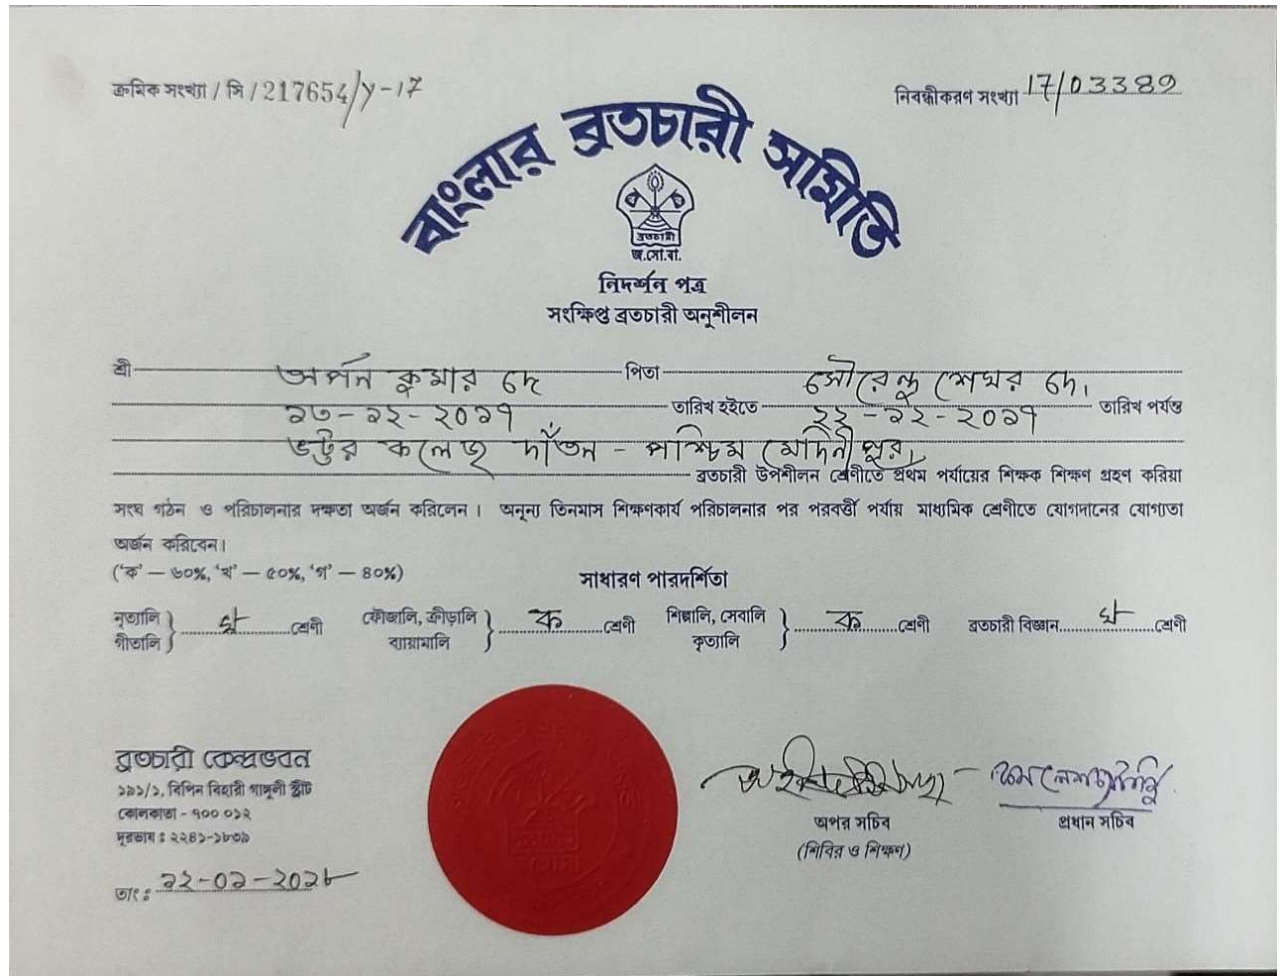 ক্রমিক সংখ্যা / সি / 217654/y-17
নিবন্ধীকরণ সংখ্যা 17/03389
বাংলার ব্রতচারী সমিতি
ব্রতচারী
জ.সো.বা.
নিদর্শন পত্র
সংক্ষিপ্ত ব্রতচারী অনুশীলন
শ্রী অর্পন কুমার দে পিতা সৌরেন্দু শেখর দে।
১৩-১২-২০১৭ তারিখ হইতে ২২-১২-২০১৭ তারিখ পর্যন্ত
ভট্টর কলেজ দাঁতন - পশ্চিম মেদিনীপুর।
ব্রতচারী উপশীলন শ্রেণীতে প্রথম পর্যায়ের শিক্ষক শিক্ষণ গ্রহণ করিয়া
সংঘ গঠন ও পরিচালনার দক্ষতা অর্জন করিলেন। অন্যূন তিনমাস শিক্ষণকার্য পরিচালনার পর পরবর্ত্তী পর্যায় মাধ্যমিক শ্রেণীতে যোগদানের যোগ্যতা
অর্জন করিবেন।
('ক' — ৬০%, 'খ' — ৫০%, 'গ' — ৪০%)
সাধারণ পারদর্শিতা
নৃত্যালি গীতালি } খ শ্রেণী ফৌজালি, ক্রীড়ালি ব্যায়ামালি } ক শ্রেণী শিল্পালি, সেবালি কৃত্যালি } ক শ্রেণী ব্রতচারী বিজ্ঞান খ শ্রেণী
ব্রতচারী কেন্দ্রভবন
১৯১/১, বিপিন বিহারী গাঙ্গুলী স্ট্রীট
কোলকাতা - ৭০০ ০১২
দূরভাষ : ২২৪১-১৮৩৯
তাং : ১২-০১-২০১৮
অপর সচিব
(শিবির ও শিক্ষণ)
প্রধান সচিব